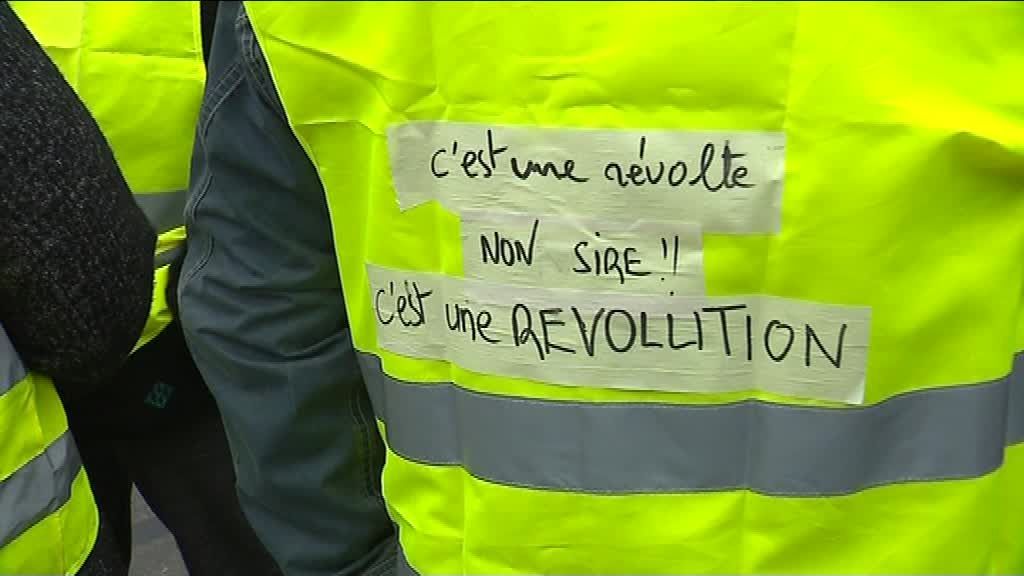 c'est une révolte
NON SIRE !!
c'est une REVOLUTION